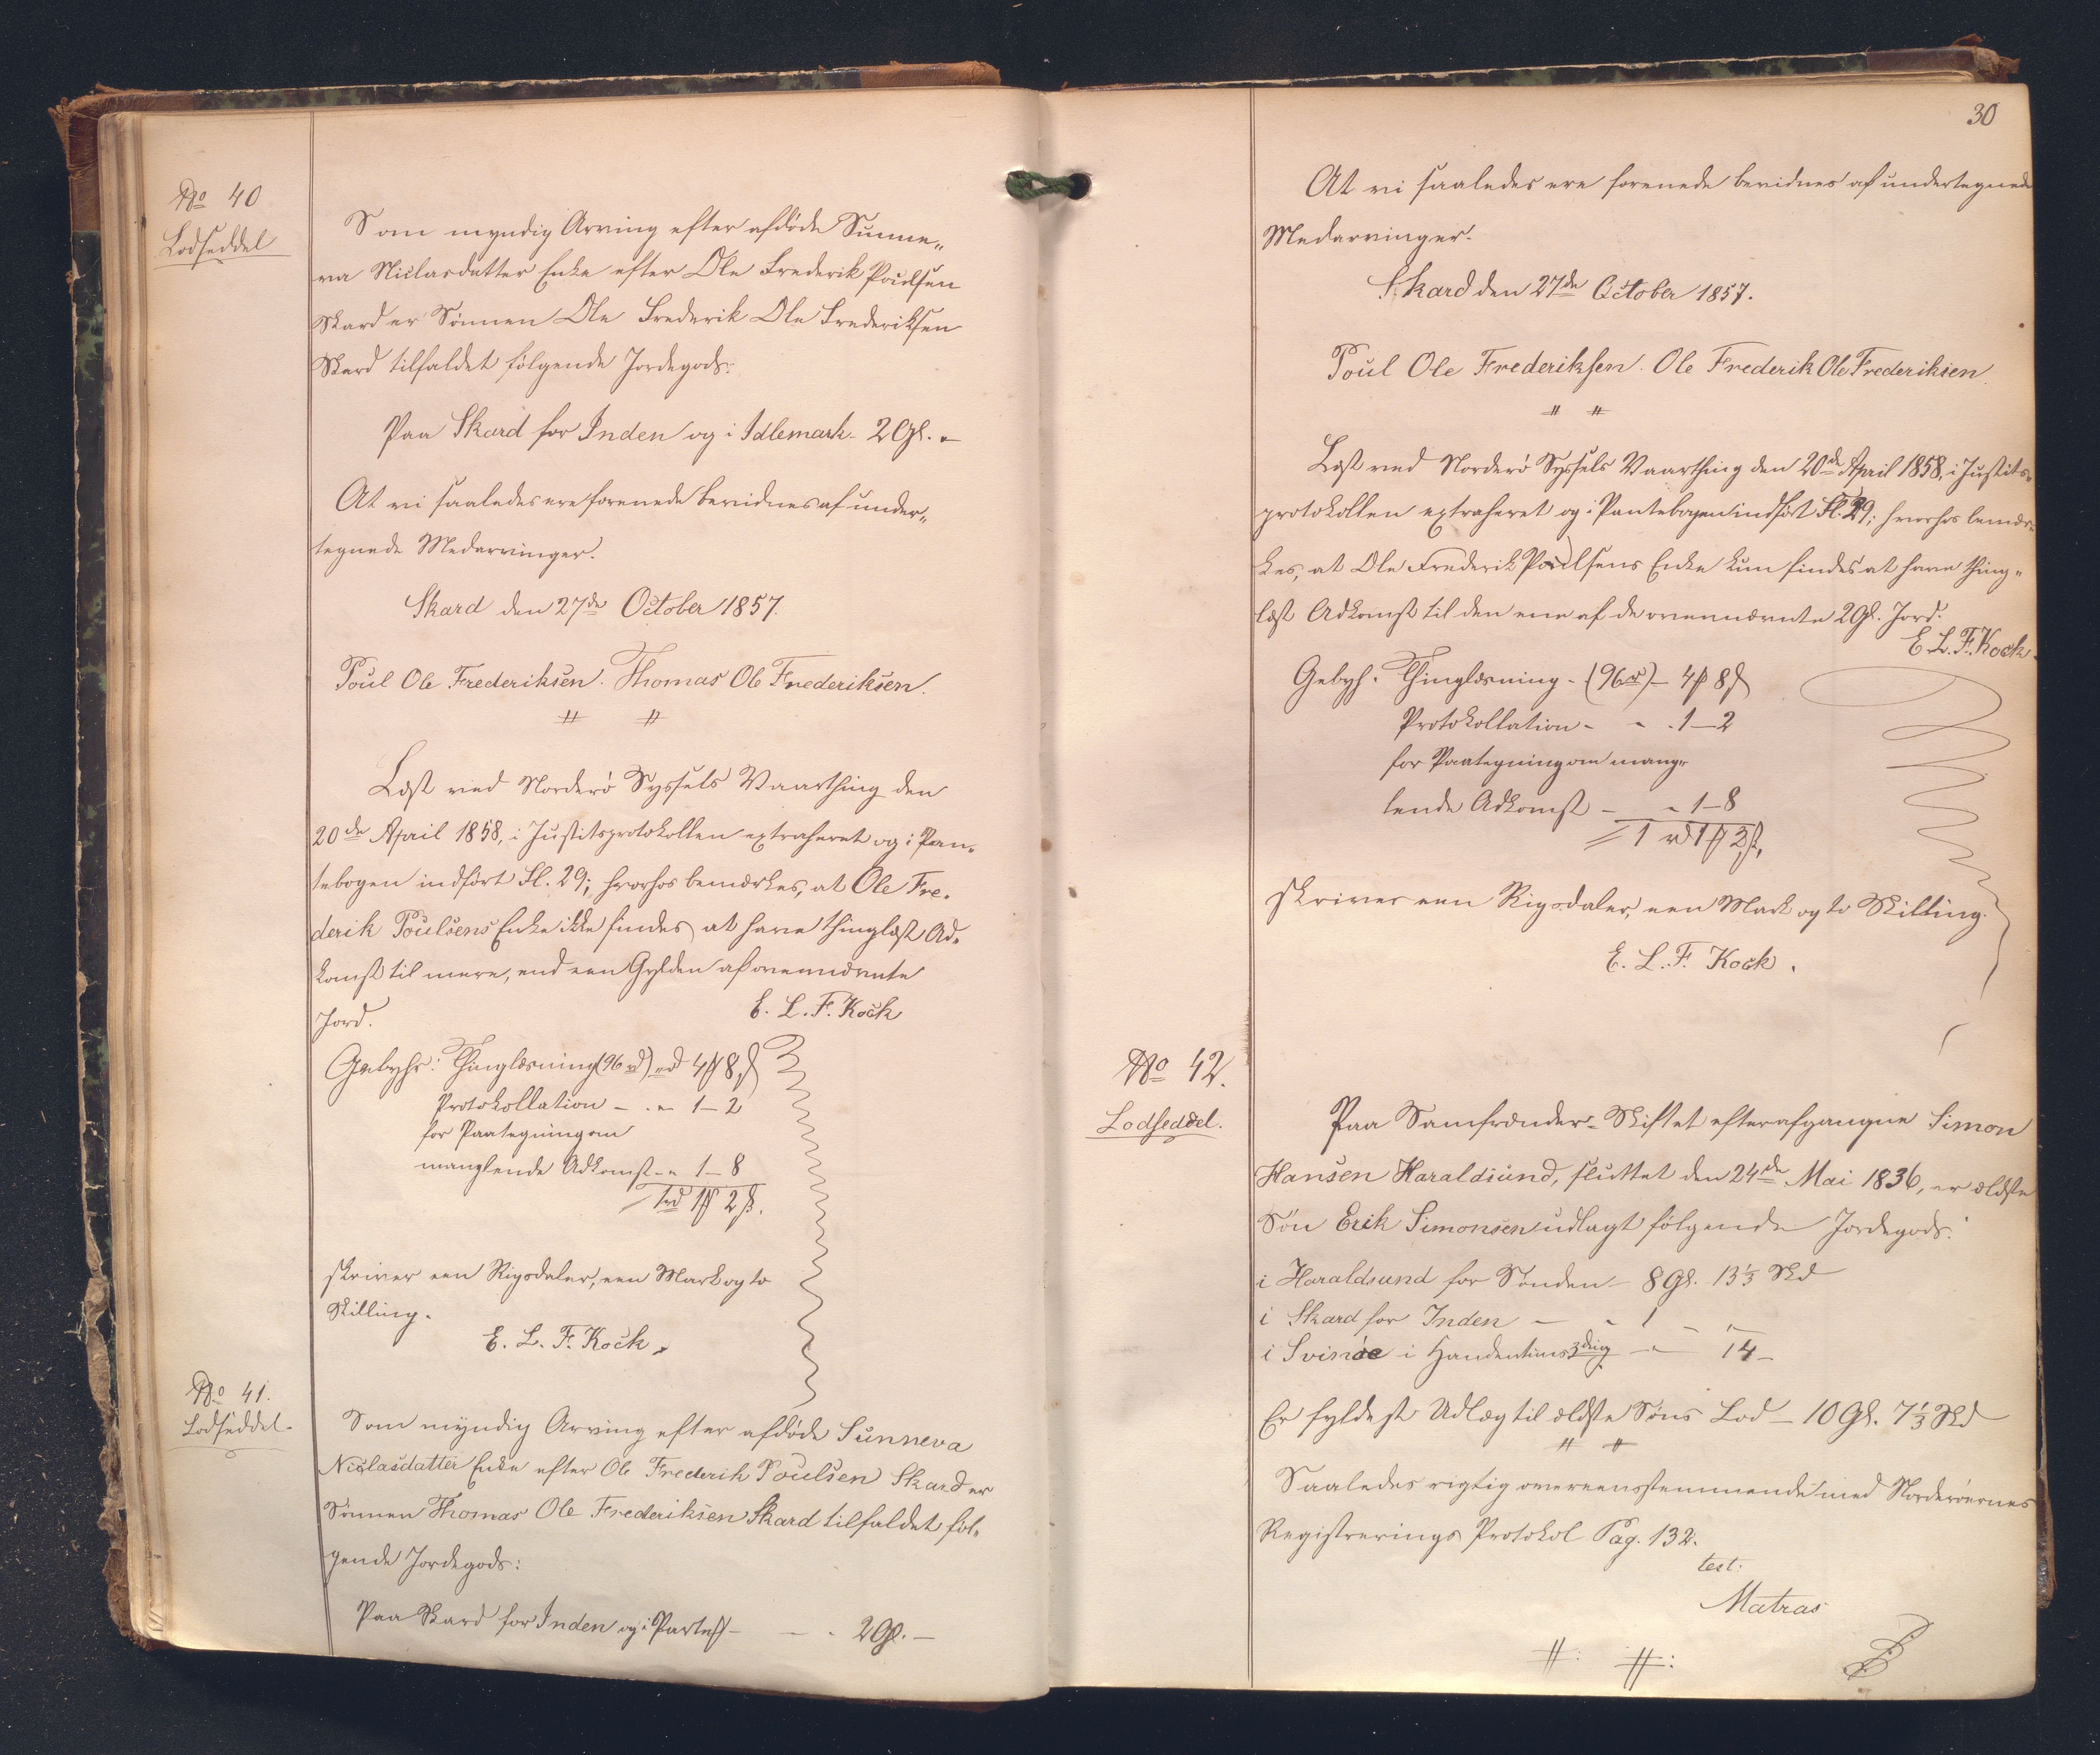 No 40
Lodseddel
Som myndig Arving efter afdøde Sunne„
va Niclasdatter Enke efter Ole Frederik Poulsen
Skard er Sønnen Ole Frederik Ole Frederiksen
Skard tilfaldet følgende Jordegods:
Paa Skard for Inden og i Idlemark - 2 Gl. „ –
At vi saaledes ere forenede bevidnes af under„
tegnede Medarvinger.
Skard den 27de October 1857.
Poul Ole Frederiksen. Thomas Ole Frederiksen.
Læst ved Norderø Syssels Vaarthing den
20de April 1858, i Justitsprotokollen extraheret og i Pan„
tebogen indført Fl. 29; hvorhos bemærkes, at Ole Fre„
derik Poulsens Enke ikke findes at have thinglæst Ad„
komst til mere, end een Gylden af ovennævnte
Jord.
E. L. F. Kock
Gebyhr: Thinglæsning (96 rd) „rd 4 ß 8 ß
Protokollation – . „ – 1 – 2
for Paategning om
manglende Adkomst – „ 1 – 8
1 rd 1 ß 2 ß.
skriver een Rigsdaler, een Mark og to
Skilling.
E. L. F. Kock.
No 41.
Lodseddel.
Som myndig Arving efter afdøde Sunneva
Niclasdatter Enke efter Ole Frederik Poulsen Skard er
Sønnen Thomas Ole Frederiksen Skard tilfaldet føl„
gende Jordegods:
Paa Skard for Inden og i – – . 2 Gl. –
30
At vi saaledes ere forenede bevidnes af undertegnede
Medarvinger.
Skard den 27de October 1857.
Poul Ole Frederiksen. Ole Frederik Ole Frederiksen.
Læst ved Norderø Syssels Vaarthing den 20de April 1858, i Justits„
protokollen extraheret og i Pantebogen indført Fl. 29; hvorhos bemær„
kes, at Ole Frederik Poulsens Enke kun findes at have thing„
læst Adkomst til den ene af de ovennævnte 2 Gl. Jord.
E. L. F. Kock.
Gebyh. Thinglæsning – (96 rd) – 4 ß 8 ß
Protokollation – „ . 1 – 2
for Paategning om mang„
lende Adkomst – „ 1 – 8
1 rd 1 ß 2 ß.
skriver een Rigsdaler, een Mark og to Skilling.
E. L. F. Kock.
No 42.
Lodseddel.
Paa Samfrænder-Skiftet efter afgangne Simon
Hansen Haraldsund, sluttet den 24de Mai 1836, er ældste
Søn Erik Simonsen udlagt følgende Jordegods:
i Haraldsund for Sønden – 8 Gl. 13 1/3 Skd
i Skard for Inden – „ 1 – „ –
i Svinøe i – „ – 14 –
Er fyldest Udlæg til ældste Søns Lod – 10 Gl. 7 1/3 Skd
Saaledes rigtig overeensstemmende med Norderøernes
Registrerings Protokol Pag. 132.
test:
Matras